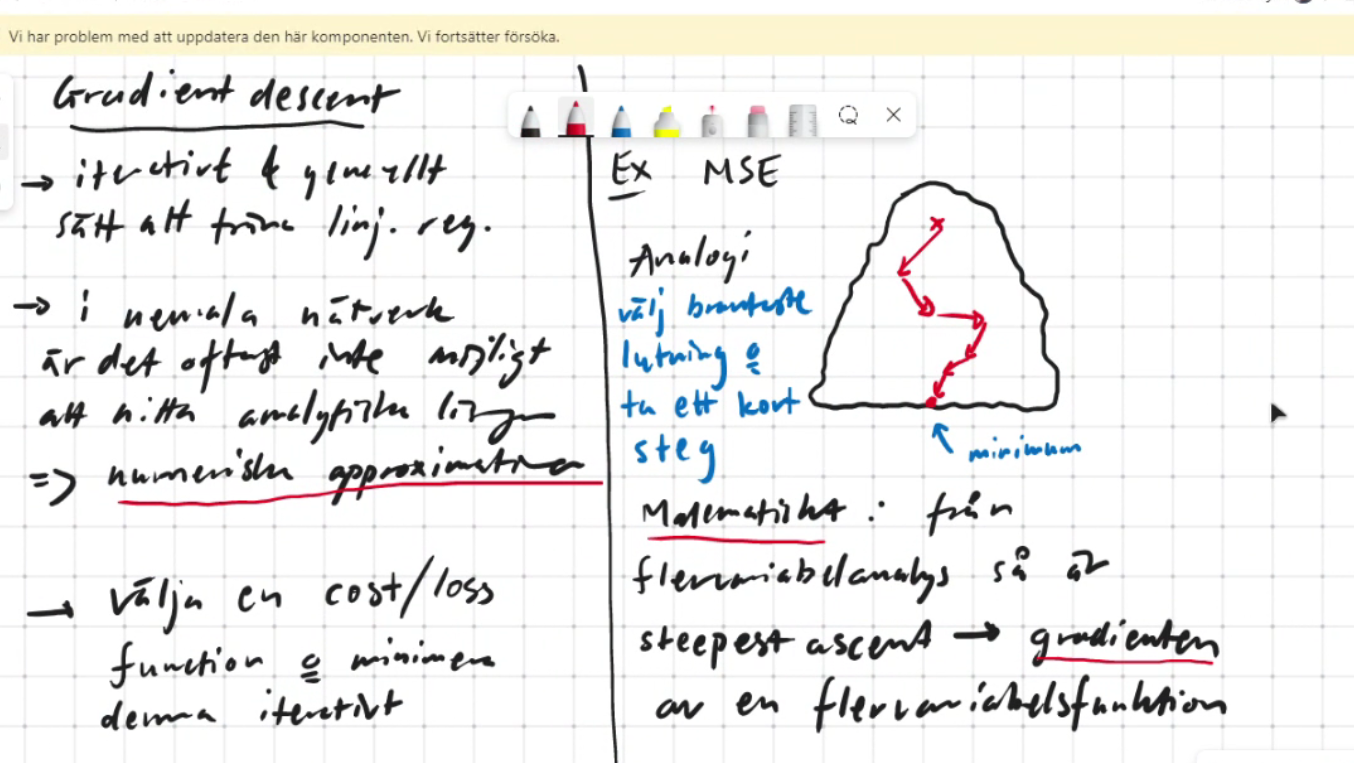 Vi har problem med att uppdatera den här komponenten. Vi fortsätter försöka.
Gradient descent
→ iterativt & generellt
sätt att träna linj. reg.
→ i neurala nätverk
är det oftast inte möjligt
att hitta analytiska lösningar
=> numeriska approximationer
→ välja en cost/loss
function o minimera
denna iterativt
Ex MSE
Analogi
välj brantaste
lutning o
ta ett kort
steg
minimum
Matematiskt: från
flervariabelanalys så är
steepest ascent → gradienten
av en flervariabelsfunktion